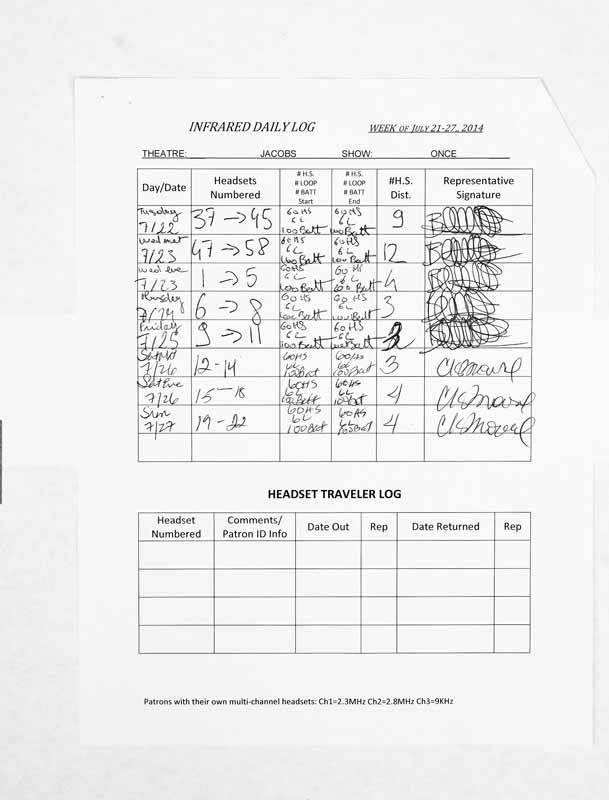 INFRARED DAILY LOG WEEK OF JULY 21-27,, 2014
THEATRE: JACOBS SHOW: ONCE
Day/Date Headsets Numbered # H.S. # LOOP # BATT Start # H.S. # LOOP # BATT End #H.S. Dist. Representative Signature
Tuesday 7/22 37 → 45 60 HS 6 L 100 Batt 60 HS 6 L 100 Batt 9
Wed mat 7/23 47 → 58 60 HS 6 L 100 Batt 60 HS 6 L 100 Batt 12
Wed eve 7/23 1 → 5 60 HS 6 L 100 Batt 60 HS 6 L 100 Batt 4
Thursday 7/24 6 → 8 60 HS 6 L 100 Batt 60 HS 6 L 100 Batt 3
Friday 7/25 9 → 11 60 HS 6 L 100 Batt 60 HS 6 L 100 Batt
Sat Mat 7/26 12-14 60 HS 6L 100 Batt 60 HS 6L 100 Batt 3
Sat Eve 7/26 15-18 60 HS 6L 100 Batt 60 HS 6L 100 Batt 4
Sun 7/27 19-22 60 HS 6L 100 Batt 60 HS 6L 100 Batt 4
HEADSET TRAVELER LOG
Headset Numbered Comments/ Patron ID Info Date Out Rep Date Returned Rep
Patrons with their own multi-channel headsets: Ch1=2.3MHz Ch2=2.8MHz Ch3=9KHz